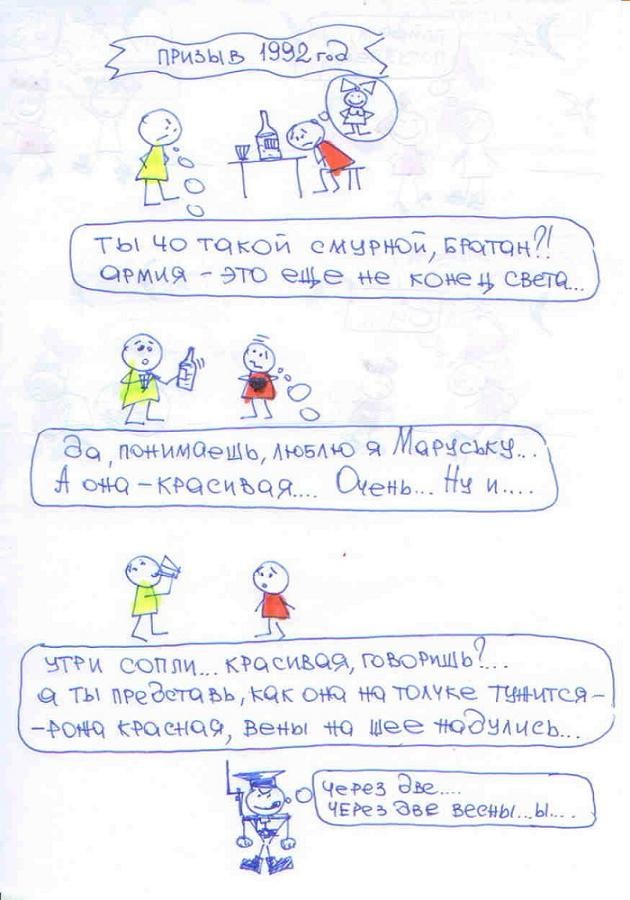 ПРИЗЫВ 1992 год
ТЫ ЧО ТАКОЙ СМУРНОЙ, БРАТАН?!
АРМИЯ - ЭТО ЕЩЕ НЕ КОНЕЦ СВЕТА...
Да, ПОНИМАЕШЬ, ЛЮБЛЮ Я МАРУСЬКУ...
А ОНА - КРАСИВАЯ.... Очень... Ну и....
УТРИ СОПЛИ... КРАСИВАЯ, ГОВОРИШЬ?...
А ТЫ ПРЕДСТАВЬ, КАК ОНА НА ТОЛЧКЕ ТУЖИТСЯ -
- РОЖА КРАСНАЯ, ВЕНЫ НА ШЕЕ НАДУЛИСЬ...
ЧЕРЕЗ ДВЕ....
ЧЕРЕЗ ДВЕ ВЕСНЫ...Ы....